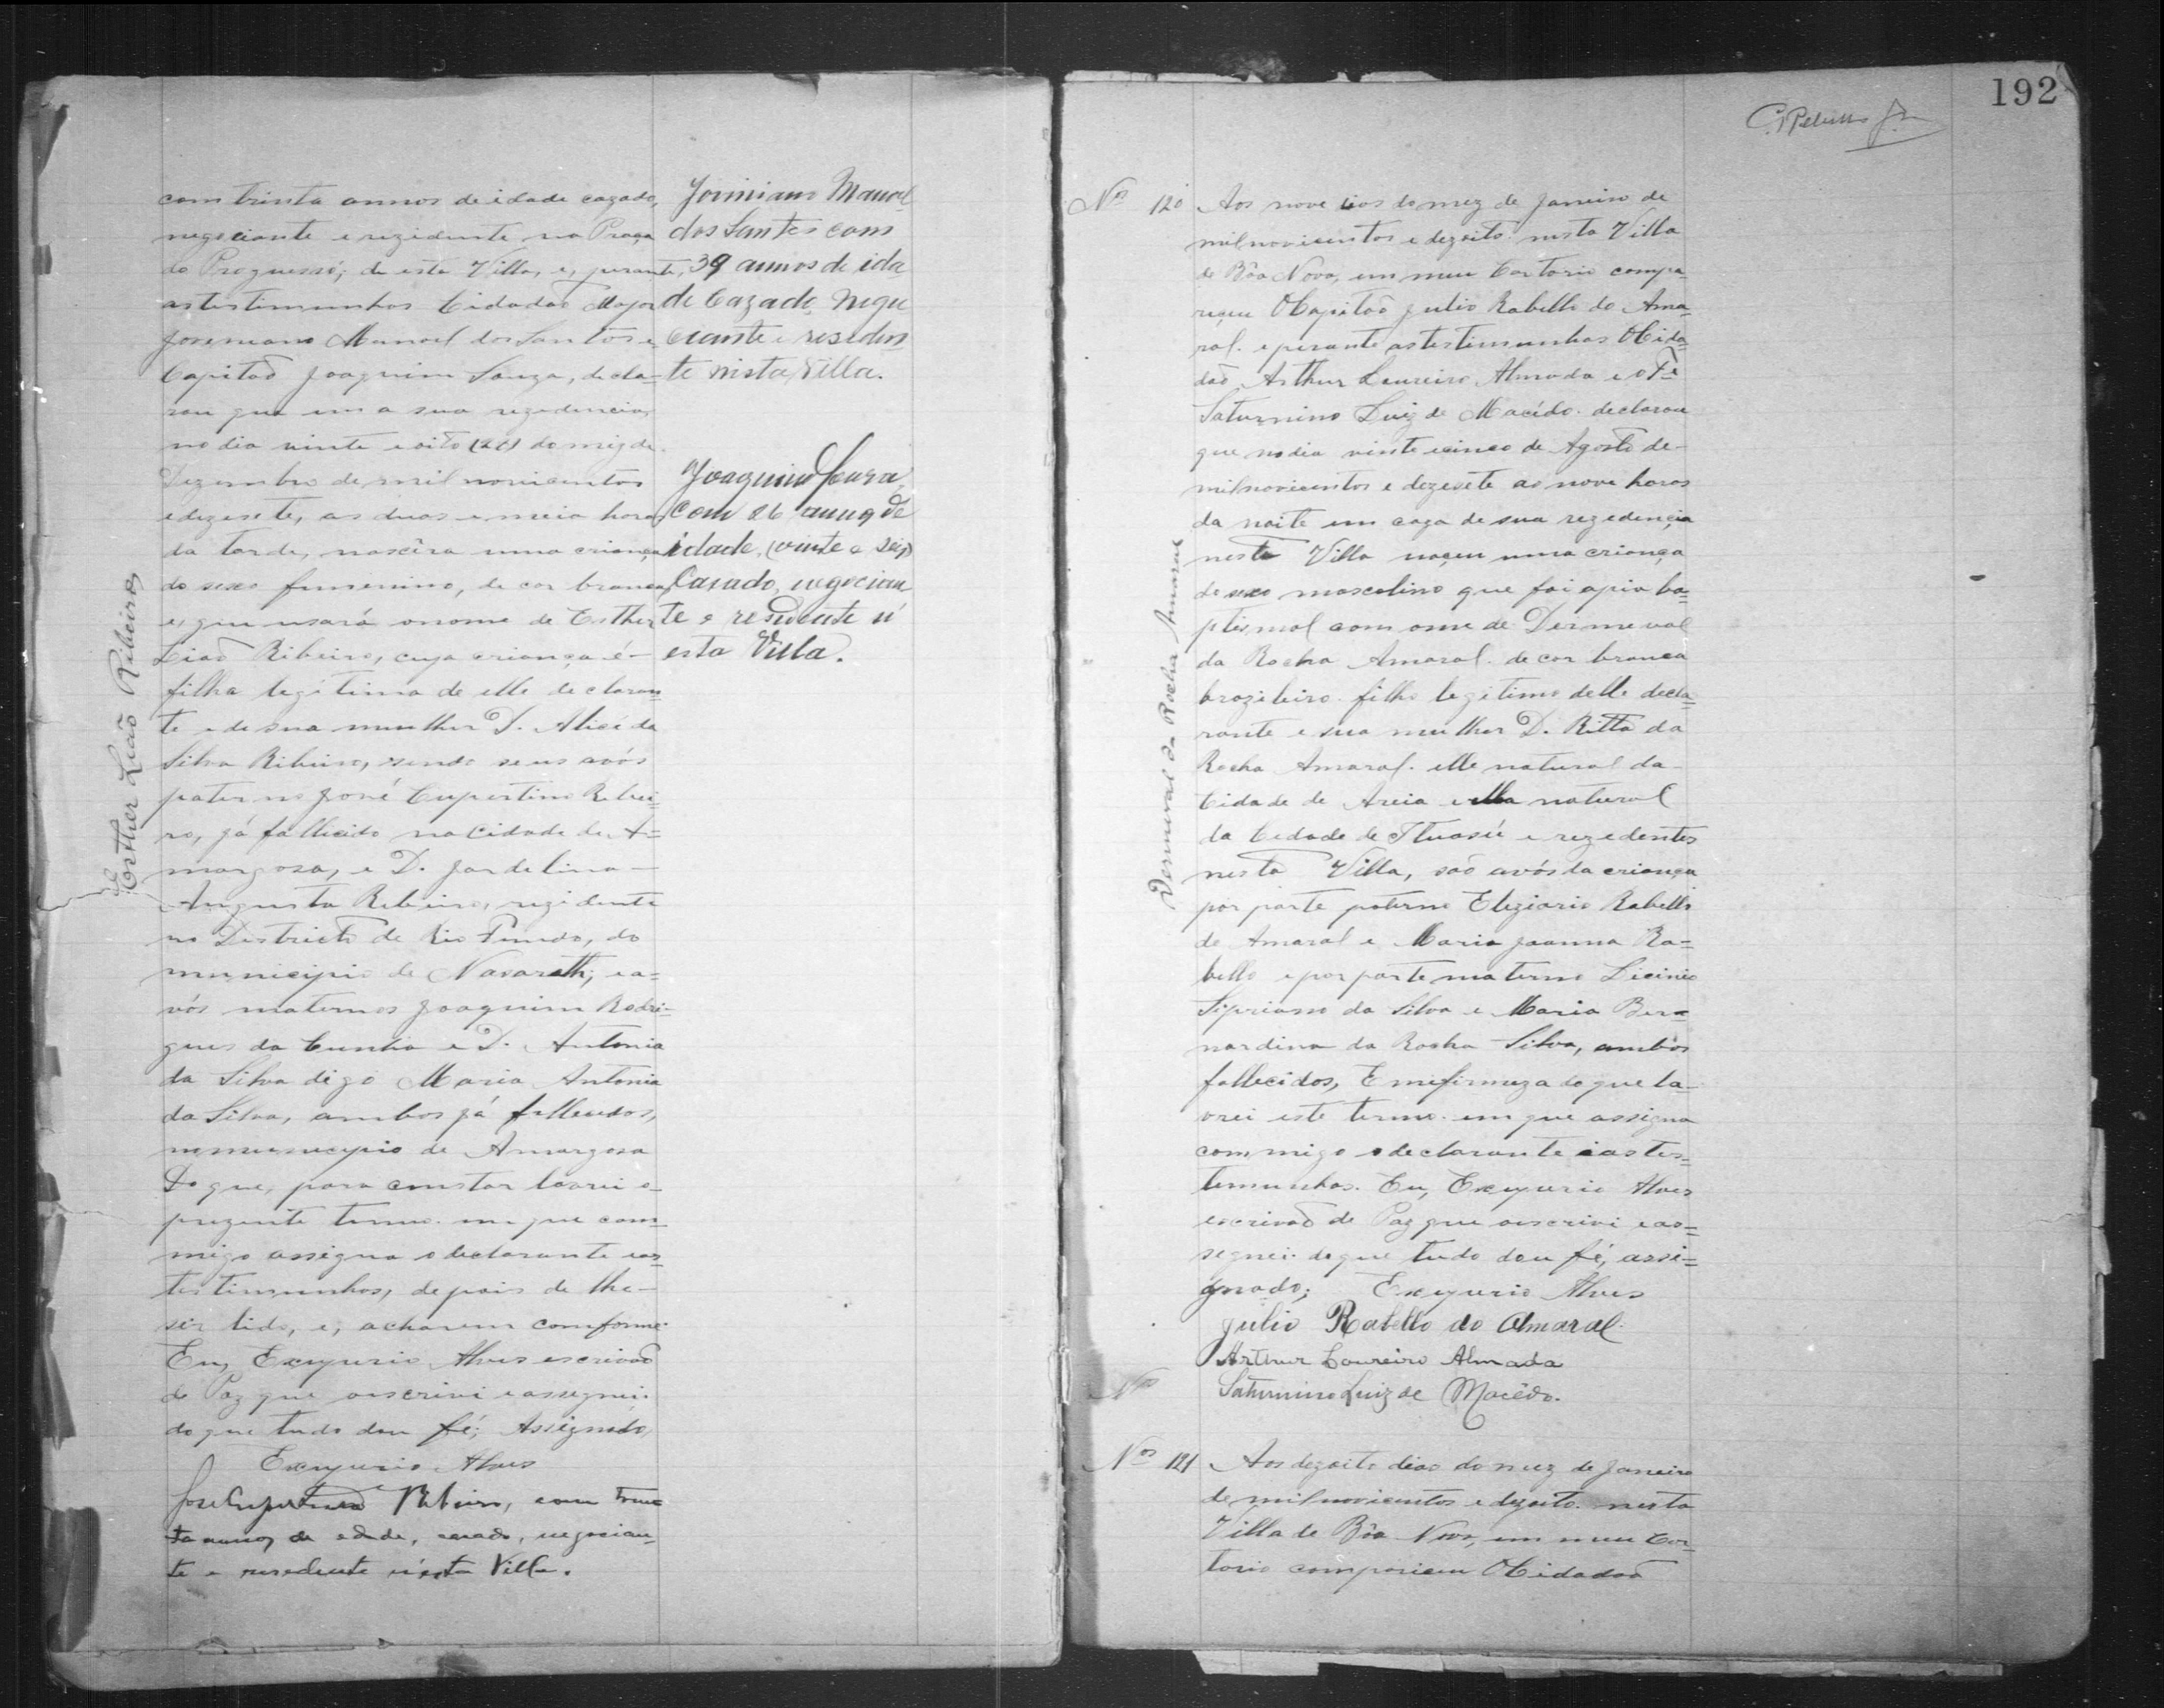 com trinta annos de idade cazado,
negociante e rezidente na Praça
do Progresso, de esta Villa, e, perante,
as testimunhas Cidadão Major
Joviniano Manoel dos Santos e
Capitão Joaquim Souza, decla-
rou que em a sua rezedencia,
no dia vinte e oito (28) do mez de
Dezembro de mil novicentos
e dezesete, as duas e meia horas
da tarde, nascêra uma criança
do sexo femenino, de cor branca,
e, que usará o nome de Esther
Lião Ribeiro, cuja criança é
filha legitima de elle declaran=
te e de sua mulher D. Alice da
Silva Ribeiro, sendo seus avós
paterno José Cupertino Ribei=
ro, já fallicido na Cidade de A=
margosa, e D. Jardelina
Augusta Ribeiro, rezidente
no Districto de Rio Fundo, do
municipio de Nasareth; e a=
vós maternos Joaquim Rodri=
gues da Cunha e D. Antonia
da Silva digo Maria Antonia
da Silva, ambos já fallecidos,
no municipio de Amargosa
Do que, para constar lavrei o
prezente termo em que com=
migo assigna o declarante e as
testimunhas, depois de lhe
ser lido, e, acharem comforme.
Eu, Exupurio Alves escrivão
de Paz que oescrivi e assegnei
do que tudo dou fé; Assignado,
Exupurio Alves
José Cupertino Ribeiro, com trin
ta annos de edade, casado, negocian=
te e residente n'esta Villa.
Esther Leão Ribeiro
Joviniano Manoel
dos Santos com
39 annos de ida
de Cazado, Nego
ciante e residen
te nista Villa.
Joaquim Souza,
Com 26 annos de
idade, (vinte e seis)
Casado, negocian
te e residente n'
esta Villa.
192
Nº 120 Aos nove dias do mez de Janeiro de
mil novicentos e dezoito nesta Villa
de Bôa Nova, em meu Cartorio compa=
receu O Capitão Julio Rabello do Ama=
ral e perante as testimunhas O Cida=
dão Arthur Loureiro Almada e o Te
Saturnino Luiz de Macêdo declarou
que no dia vinte e cinco de Agosto de
mil novicentos e dezesete as nove horas
da noite em caza de sua rezedencia
nesta Villa naçeu uma criança
de sexo mascolino que foi a pia ba=
ptismal com ome de Dermeval
da Rocha Amaral de cor branca
brazileiro filho legitimo delle decla=
rante e sua mulher D. Ritta da
Rocha Amaral. elle natural da
Cidade de Areia e ella natural
da Cedade de Ituasú e rezedentes
nesta Villa, são avós da criança
por parte paterno Eleziario Rabello
de Amaral e Maria Joanna Ra=
bello e por parte materno Licinio
Sipriano da Silva e Maria Ber=
nardina da Rocha Silva, ambos
fallecidos, E mefirmeza do que la=
vrei este termo em que assigna
commigo o declarante e as tes=
temunhas. Eu, Exupurio Alves
escrivão de Paz que oescrivi e as=
segnei do que tudo dou fé, assi=
gnado; Exupurio Alves
Julio Rabello do Amaral.
Arthur Loureiro Almada
Nº Saturnino Luiz de Macêdo.
Dermeval da Rocha Amaral
Nº 121 Aos dezoito dias do mez de Janeiro
de mil novicentos e dezoito nesta
Villa de Bôa Nova, em meu Car=
torio compariceu O Cidadão